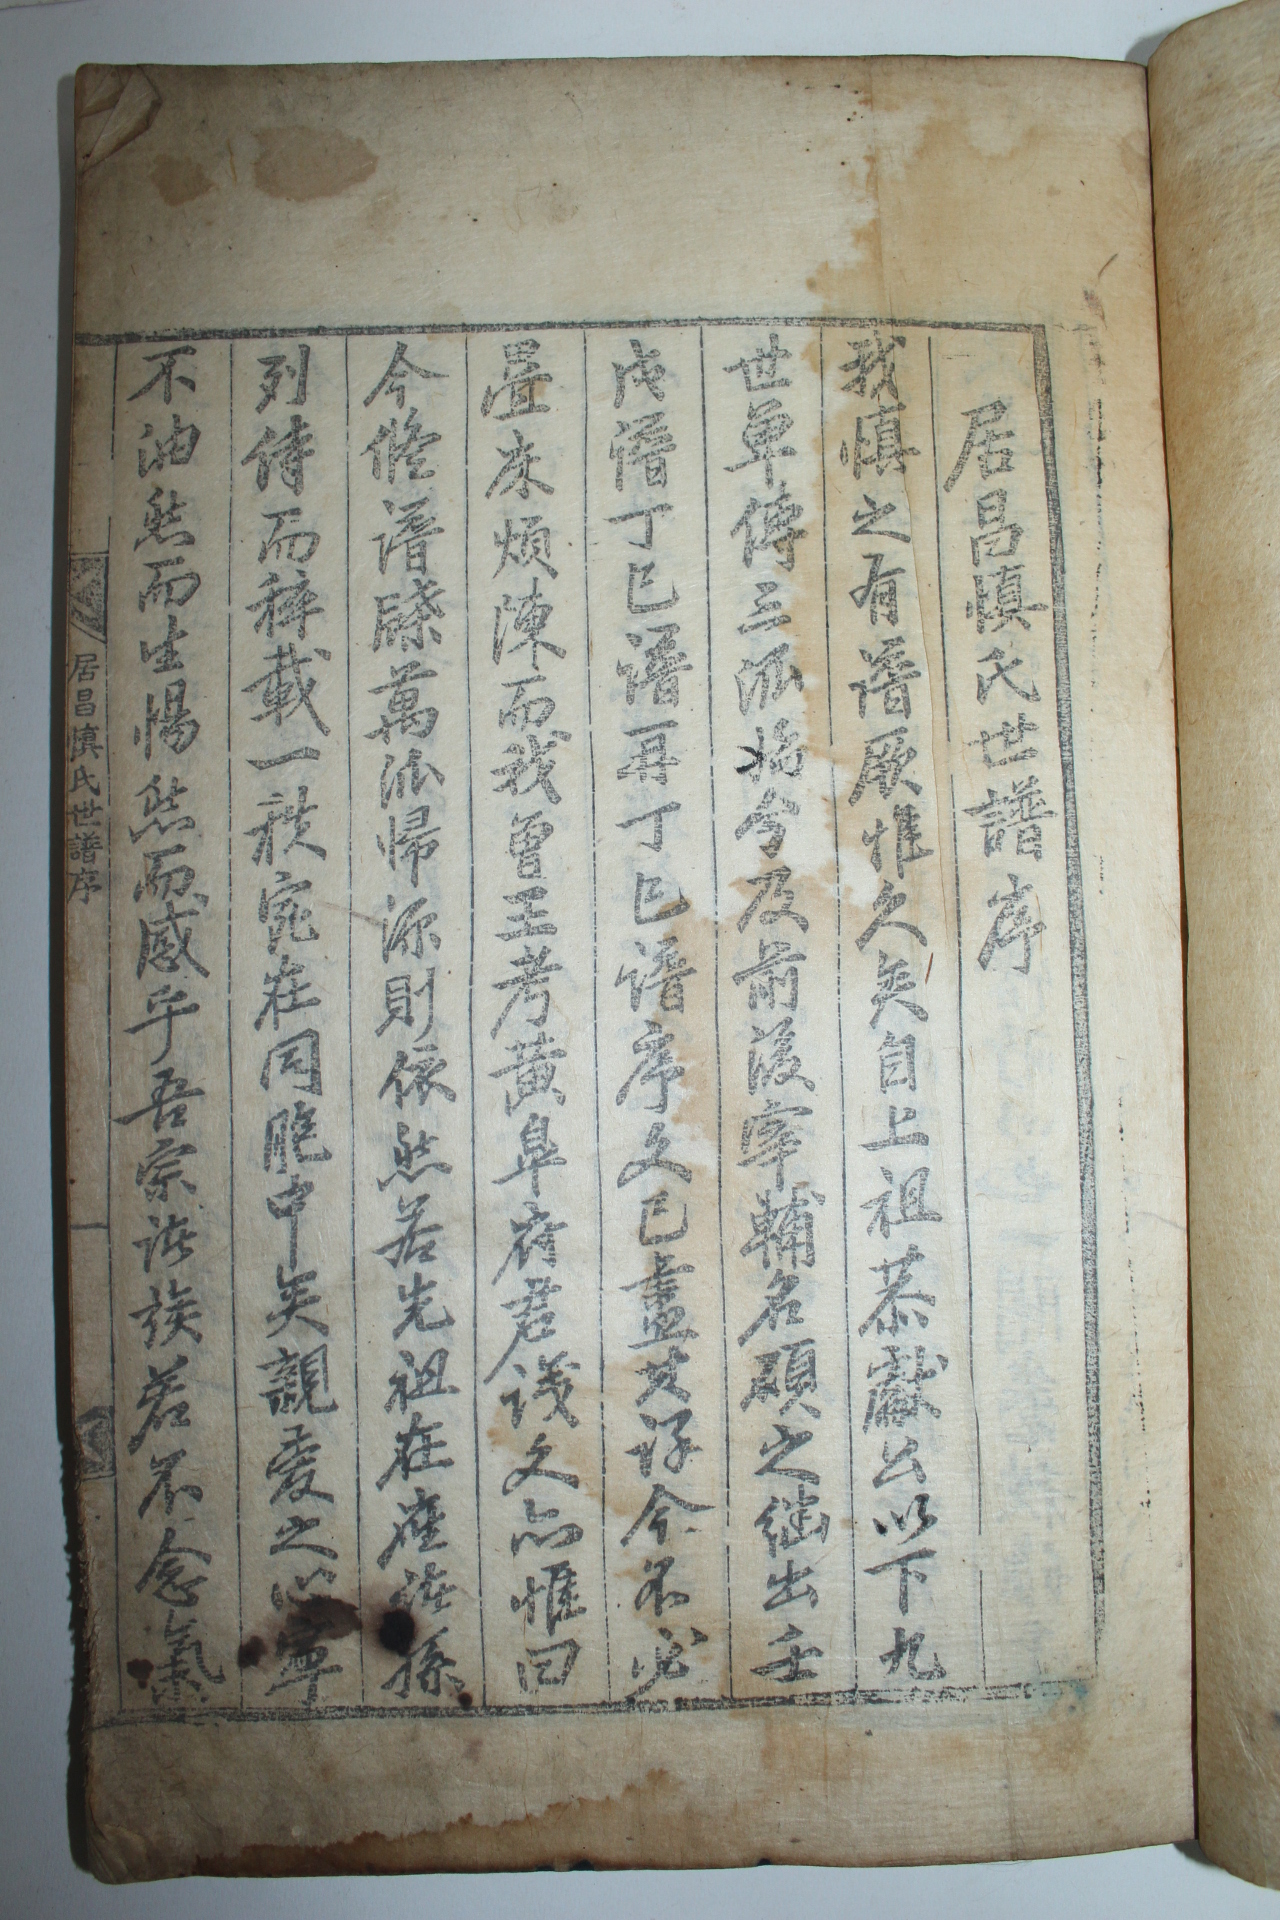 居昌愼氏世譜序
我愼之有譜厥惟久矣自上祖恭獻公以下九
世單傳三派始分及前後宰輔名碩之繼出壬
戌譜丁巳譜再丁巳譜序文已盡其詳今不必
疊床煩陳而我曾王考黃皐府君議文亦惟曰
今修譜牒萬派歸源則依然若先祖在座諸孫
列侍而稡載一秩宛在同胞中矣親愛之心寧
不油然而生惕然而感乎吾宗諸族若不念氣
居昌愼氏世譜序
一